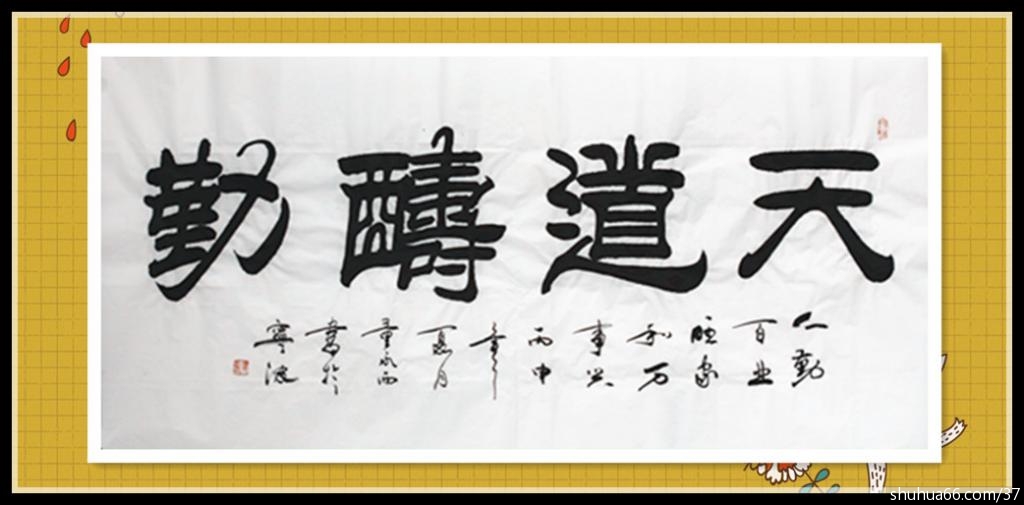 天道醻勤
人勤
百业
旺家
和万
事兴
丙申
年
夏月
書於
寧波
shuhua66.com/37